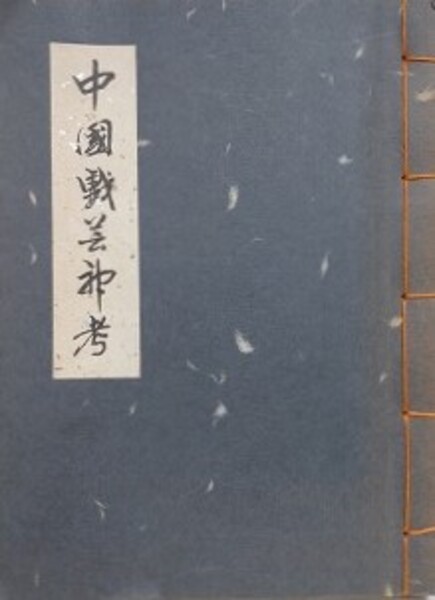 中國戲芸神考